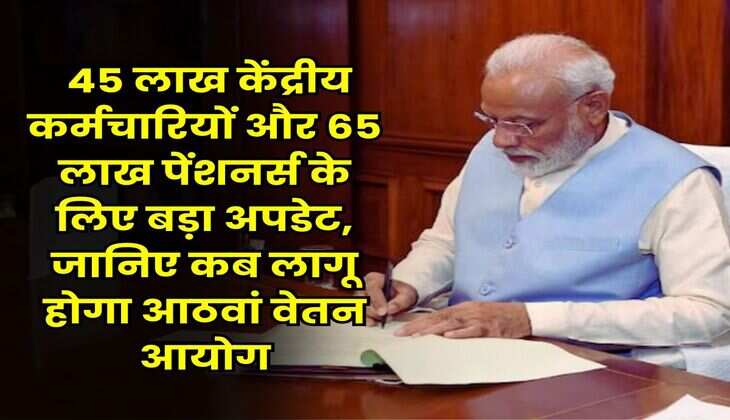 45 लाख केंद्रीय
कर्मचारियों और 65
लाख पेंशनर्स के
लिए बड़ा अपडेट,
जानिए कब लागू
होगा आठवां वेतन
आयोग